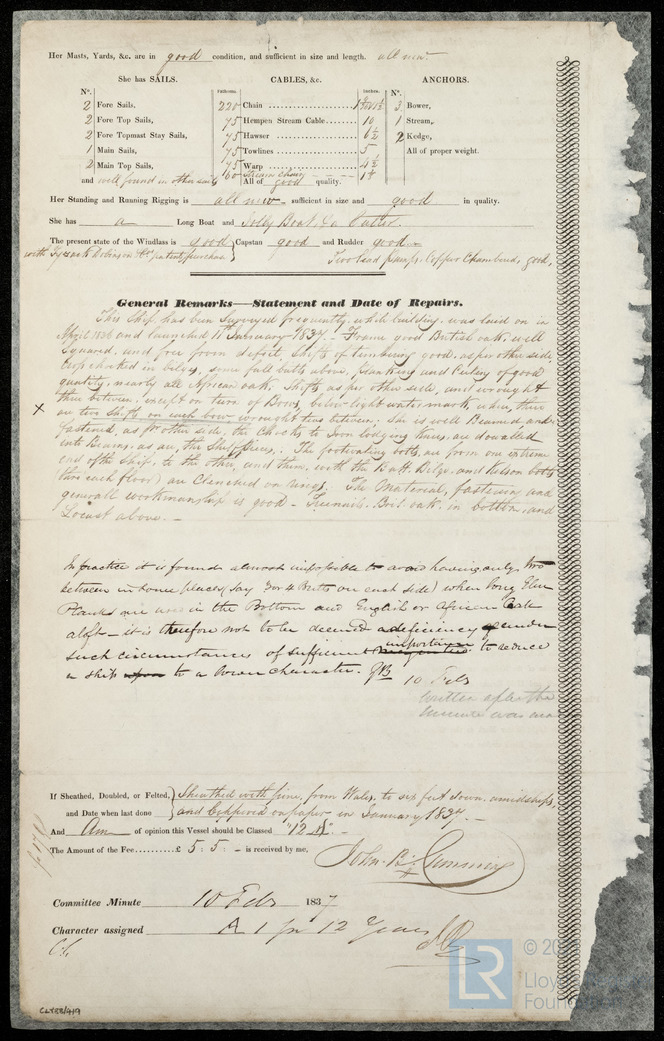 Her Masts, Yards, &c. are in good condition, and sufficient in size and length. all new
She has SAILS. CABLES, &c. ANCHORS.
No. Fathoms. Inches. No.
2 Fore Sails, 220 Chain 3 Bower,
2 Fore Top Sails, 75 Hempen Stream Cable 10 1 Stream,
2 Fore Topmast Stay Sails, 75 Hawser 6½ 2 Kedge,
1 Main Sails, 75 Towlines 5 All of proper weight.
2 Main Top Sails, 75 Warp 4½
and well found in other sails 60 Stream chain
All of good quality.
Her Standing and Running Rigging is all new sufficient in size and good in quality.
She has a Long Boat and Jolly Boat, & Cutter.
The present state of the Windlass is good Capstan good and Rudder good
with Tyzack Dobinson & Co patent purchase Two lead pumps. Copper Chambered, good,
General Remarks—Statement and Date of Repairs.
This Ship has been Surveyed frequently while building. was laid on in
April 1836 and launched 11th January 1837 - Frame good British oak, well
Squared, and free from defect, Shifts of timbering good, as per other side
Crop checked in below, some full butts above, planking and Ceiling of good
quality, nearly all African oak. Shifts as per other side, and wrought
three between, except on two of Bows, below light water mark, when there
X are two Shifts on each bow wrought two between. She is well Beamed and
fastened, as pr other side, the Chocks to Iron lodging Knees, are dowelled
into Beams, as are the Shelf pieces. The footwaling bolts, are from one extreme
end of the Ship, to the other, and them, with the Butt, Bilge, and Kelson bolts
(thro each floor) are Clenched on rings. The Material, fastening and
general workmanship is good - Treenails. Brit oak, in bottom, and
Locust above. -
In practice it is found almost impossible to avoid having only two
between in some places (say 3 or 4 Butts on each side) when long Elm
Planks are used in the Bottom and English or African Oak
aloft - it is therefore not to be deemed a deficiency under
such circumstances of sufficient importance to reduce
a ship to a lower character. 10 Feb
written after the
minute was
If Sheathed, Doubled, or Felted, Sheathed with pine, from Wales, to six feet down amidships,
and Date when last done and Coppered on paper in January 1837. -
And Am of opinion this Vessel should be Classed "12 A". -
The Amount of the Fee £ 5 : 5 : - is received by me,
John B. Cumming
Committee Minute 10 Feb 1837
Character assigned A 1 for 12 Years
LR © 20
Lloyd's
Foundation